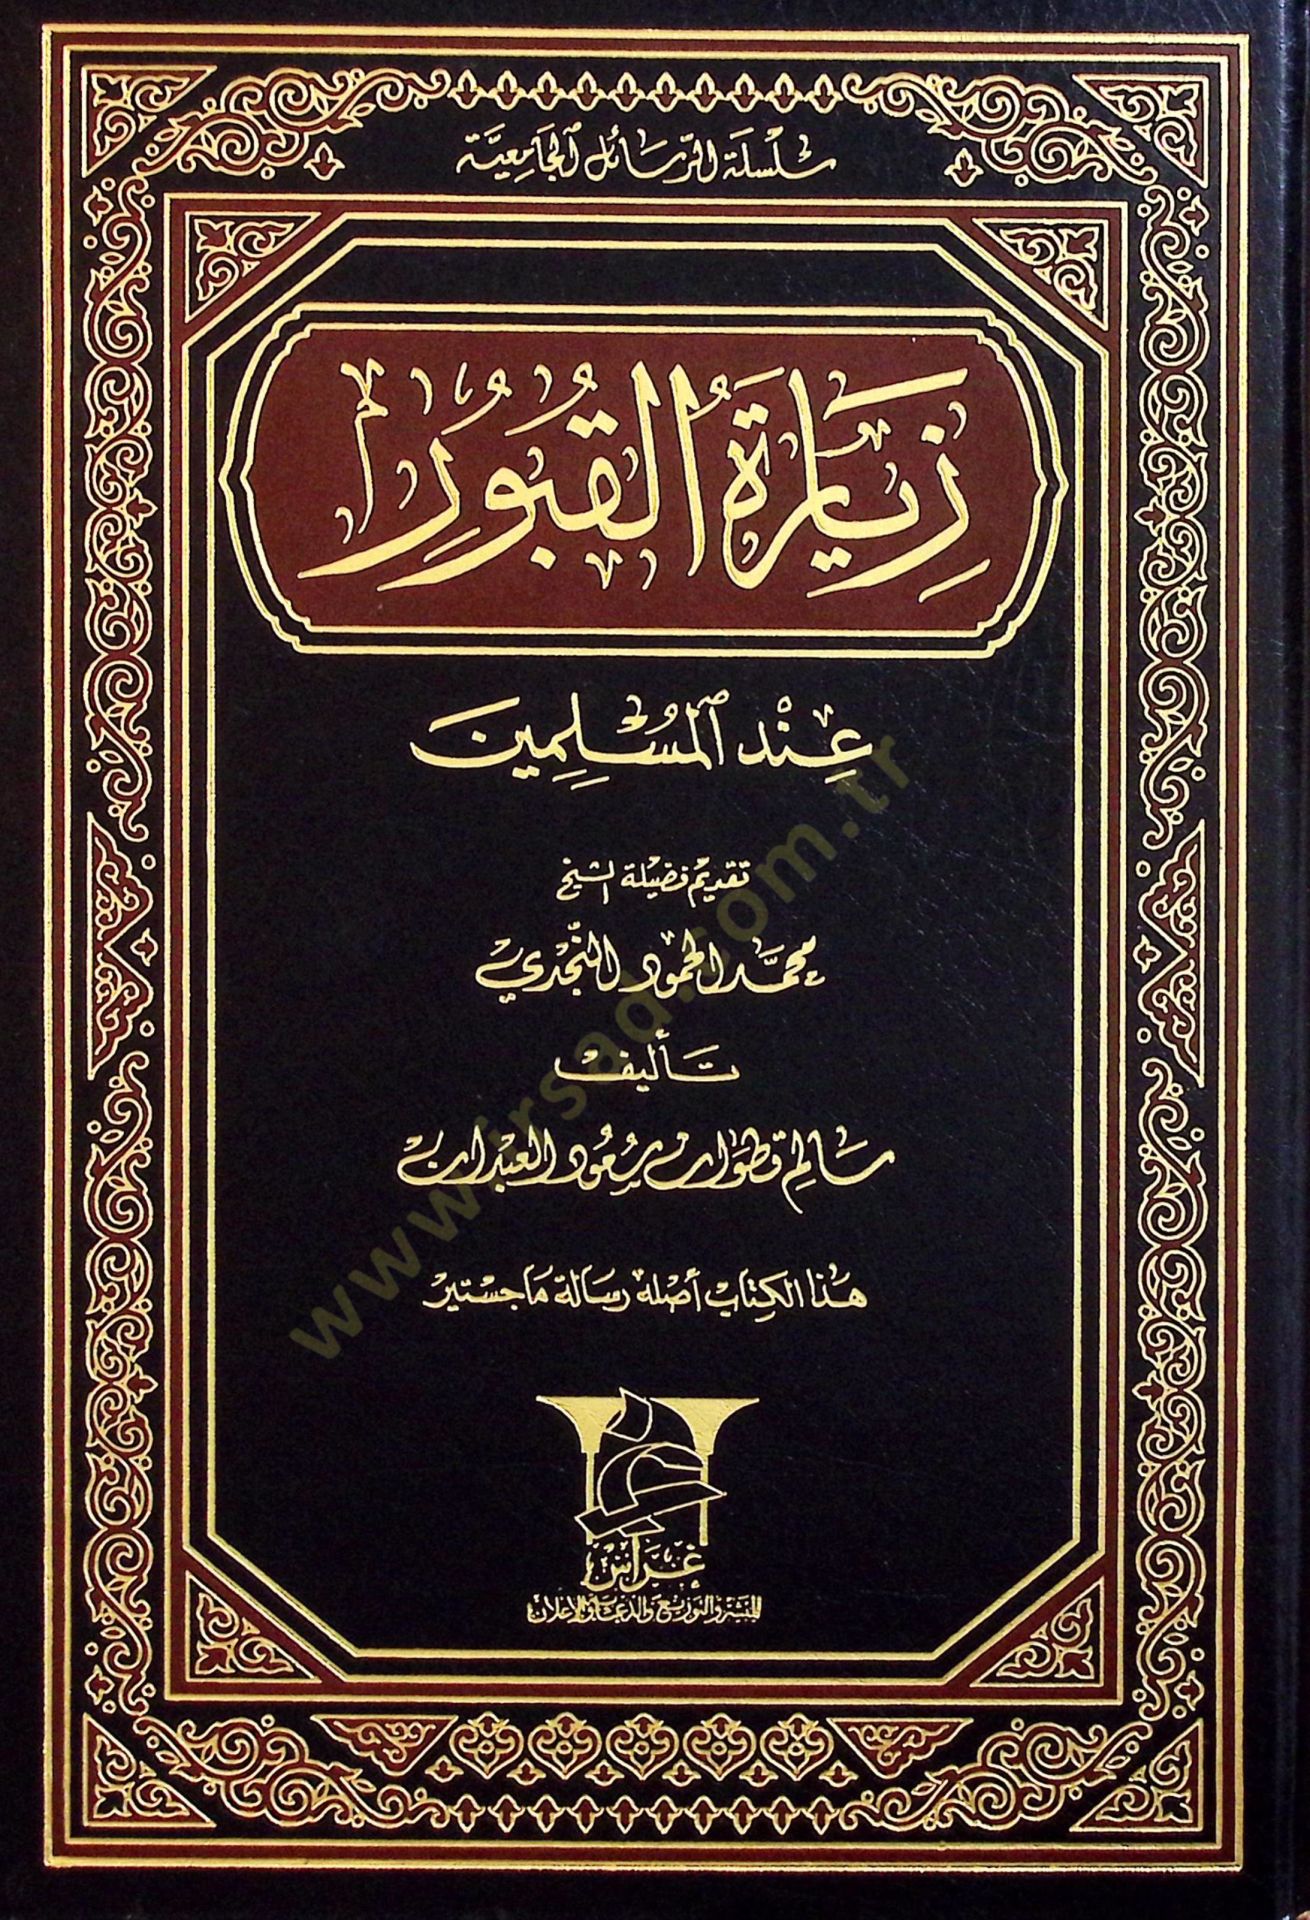 سلسلة الرسائل الجامعية
زِيَارَةُ القُبُورِ
عِنْدَ المُسْلِمِينَ
تقديم فضيلة الشيخ
محمد الحمود النجدي
تأليف
سالم قطوان سعود العبدان
هذا الكتاب أصله رسالة ماجستير
غراس
للنشر والتوزيع والدعاية والإعلان
www.irsad.com.tr